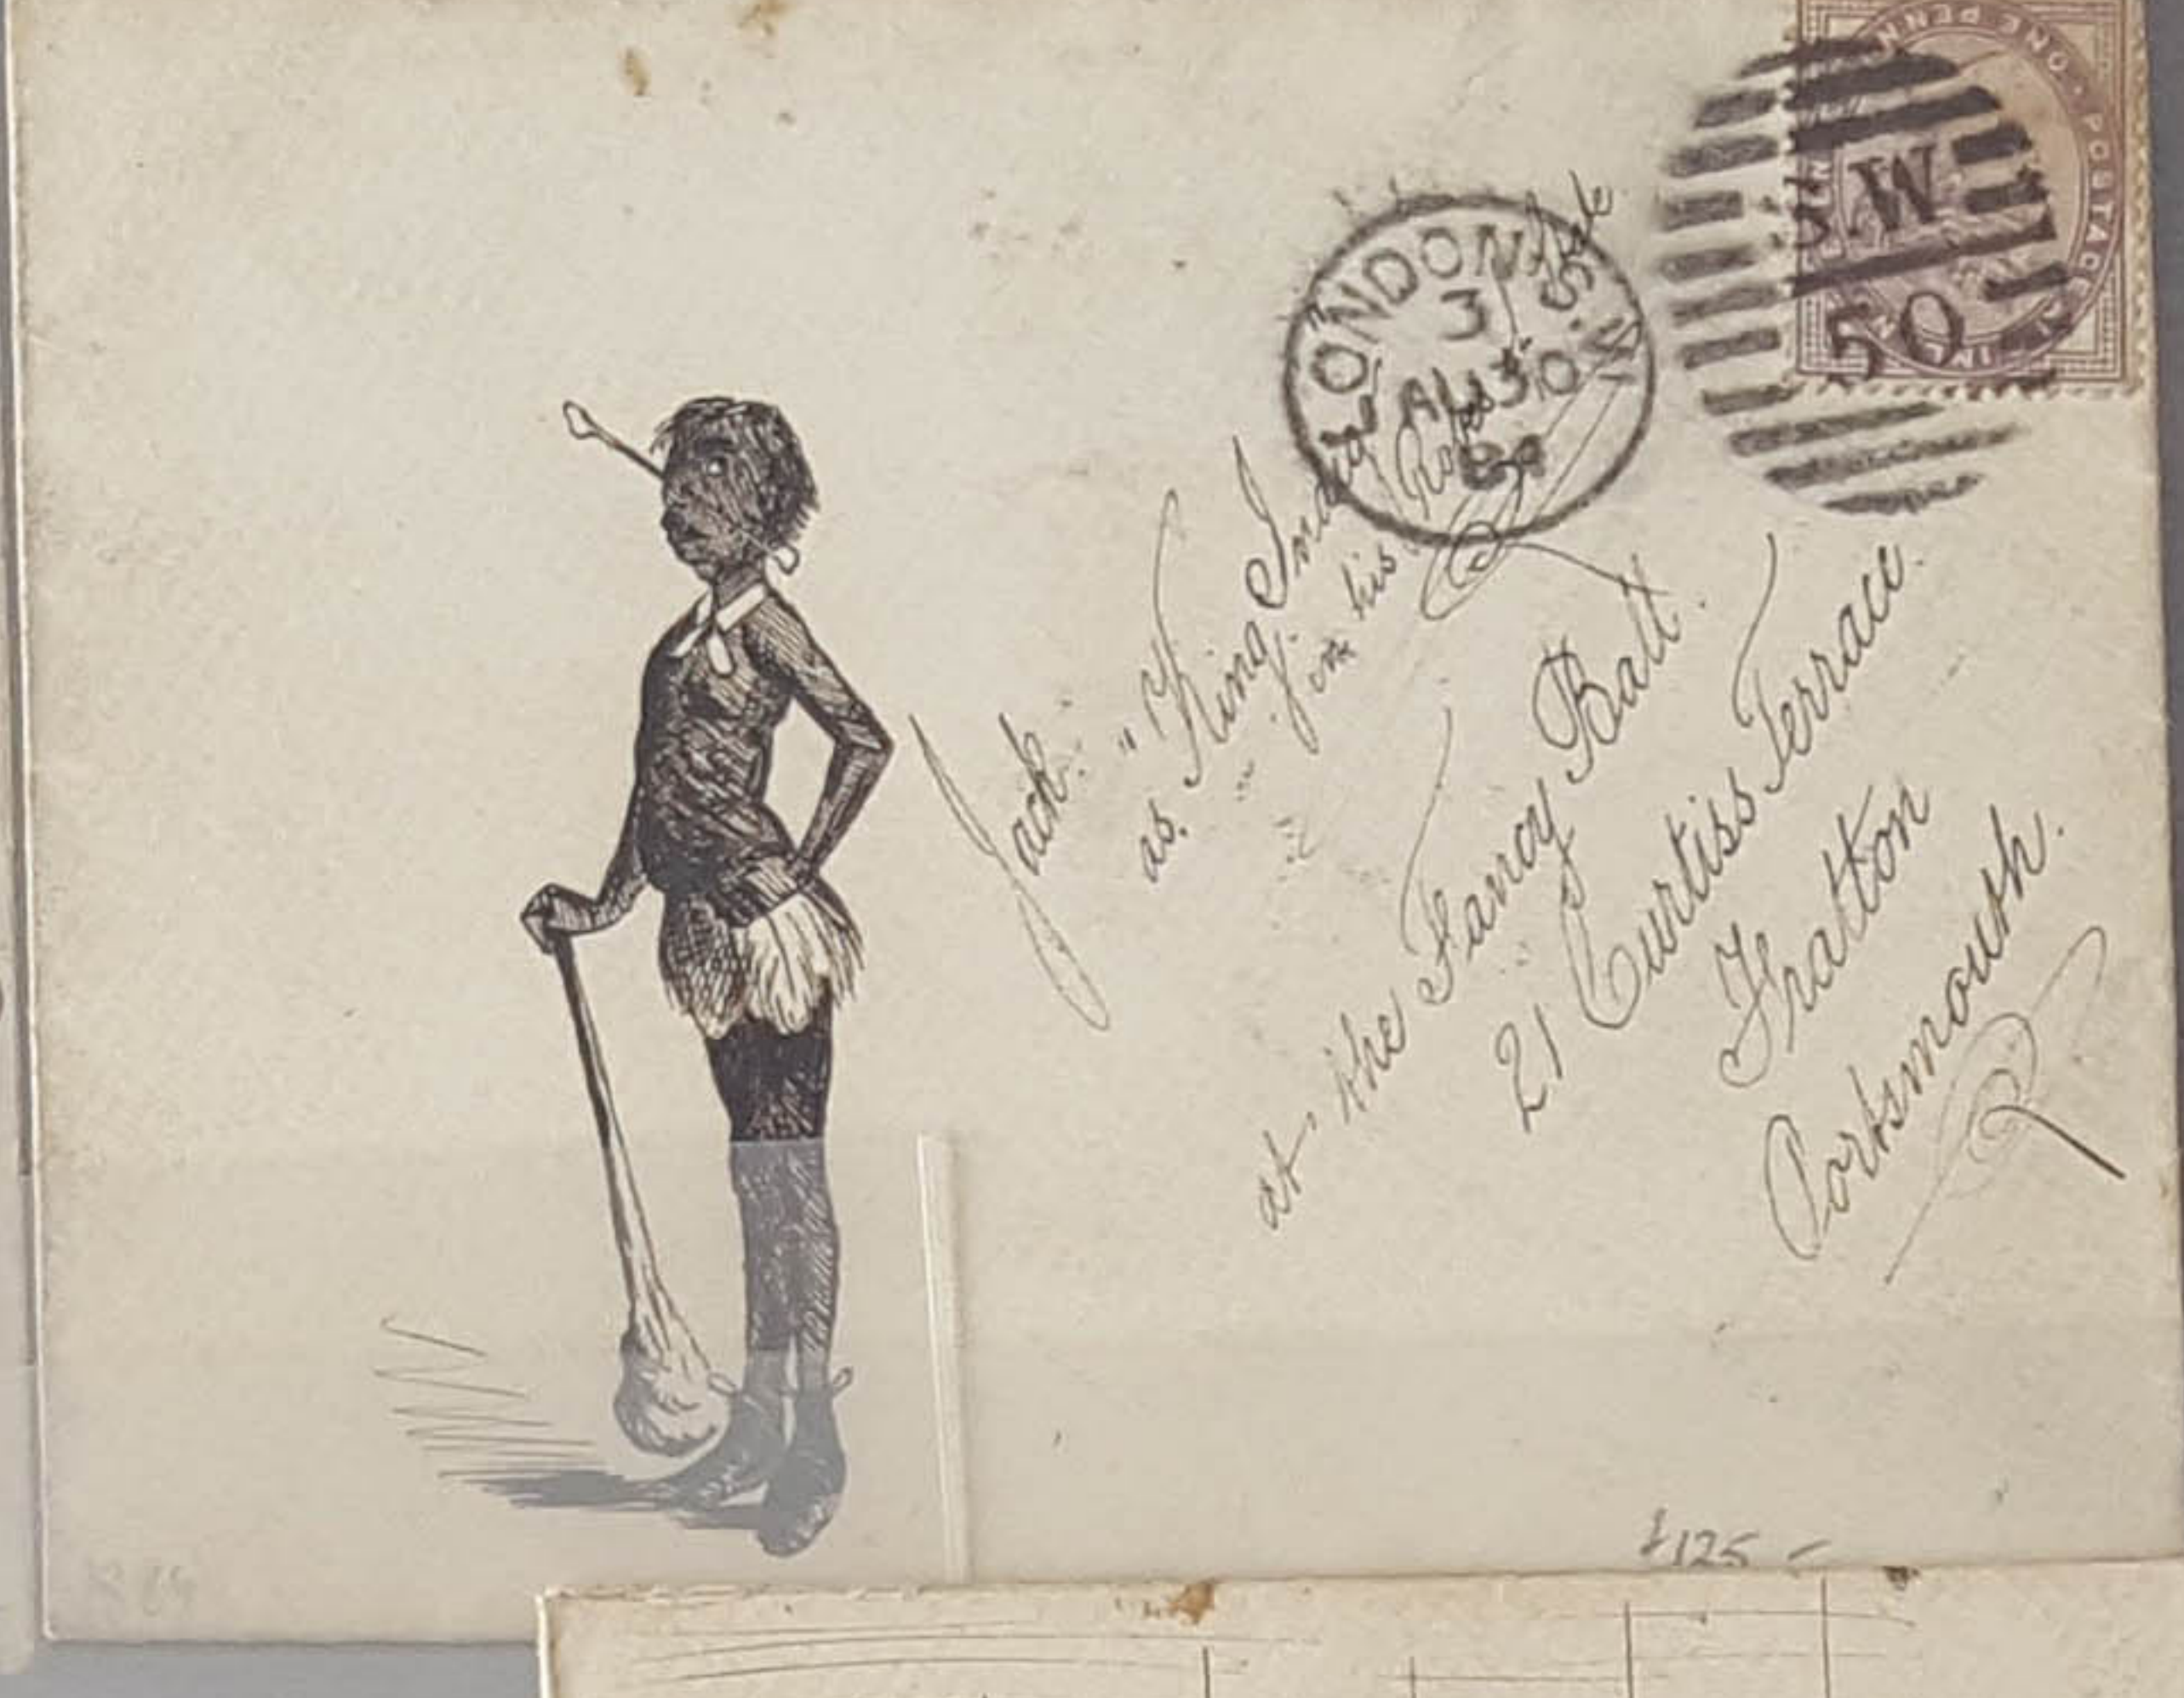 ONE PENNY POSTAGE
S.W
50
LONDON S.W
3
AU 30
89
Jack.
as. "King
in his
at the Fancy Ball.
21 Curtiss Terrace.
Fratton
Portsmouth.
£125 -